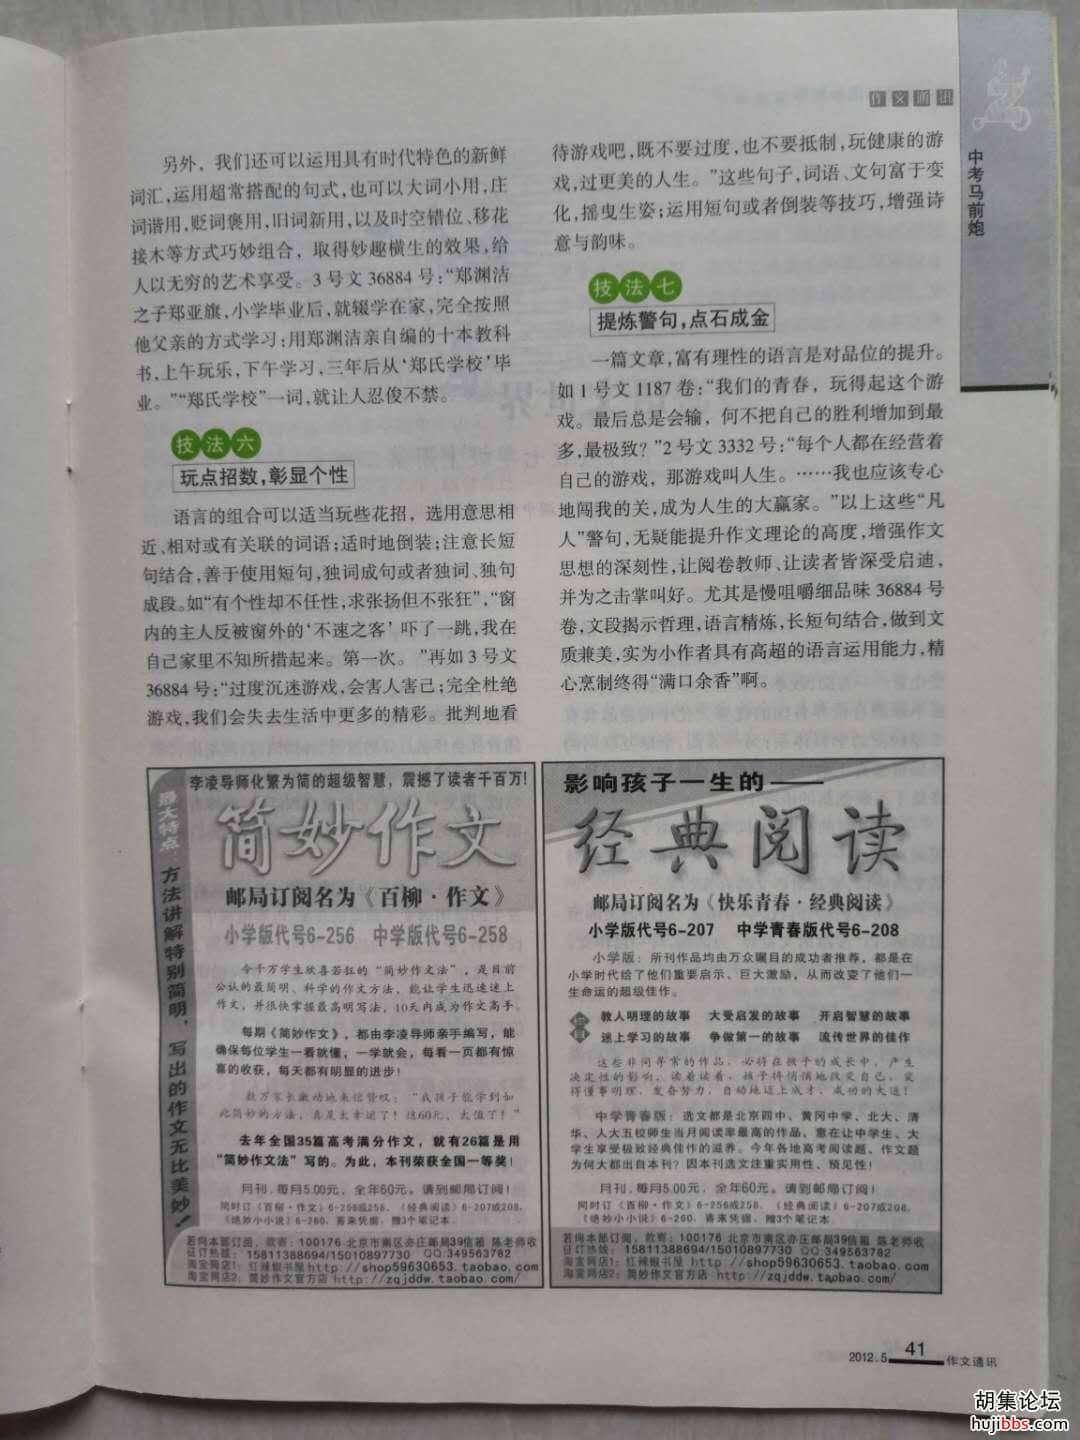 作文通讯
中考马前炮
另外，我们还可以运用具有时代特色的新鲜
词汇，运用超常搭配的句式，也可以大词小用，庄
词谐用，贬词褒用，旧词新用，以及时空错位、移花
接木等方式巧妙组合，取得妙趣横生的效果，给
人以无穷的艺术享受。3号文36884号：“郑渊洁
之子郑亚旗，小学毕业后，就辍学在家，完全按照
他父亲的方式学习：用郑渊洁亲自编的十本教科
书，上午玩乐，下午学习，三年后从‘郑氏学校’毕
业。”“郑氏学校”一词，就让人忍俊不禁。
技法六
玩点招数，彰显个性
语言的组合可以适当玩些花招，选用意思相
近、相对或有关联的词语；适时地倒装；注意长短
句结合，善于使用短句，独词成句或者独词、独句
成段。如“有个性却不任性，求张扬但不张狂”，“窗
内的主人反被窗外的‘不速之客’吓了一跳，我在
自己家里不知所措起来。第一次。”再如3号文
36884号：“过度沉迷游戏，会害人害己；完全杜绝
游戏，我们会失去生活中更多的精彩。批判地看
待游戏吧，既不要过度，也不要抵制，玩健康的游
戏，过更美的人生。”这些句子，词语、文句富于变
化，摇曳生姿；运用短句或者倒装等技巧，增强诗
意与韵味。
技法七
提炼警句，点石成金
一篇文章，富有理性的语言是对品位的提升。
如1号文1187卷：“我们的青春，玩得起这个游
戏。最后总是会输，何不把自己的胜利增加到最
多，最极致？”2号文3332号：“每个人都在经营着
自己的游戏，那游戏叫人生。……我也应该专心
地闯我的关，成为人生的大赢家。”以上这些“凡
人”警句，无疑能提升作文理论的高度，增强作文
思想的深刻性，让阅卷教师、让读者皆深受启迪，
并为之击掌叫好。尤其是慢咀嚼细品味36884号
卷，文段揭示哲理，语言精炼，长短句结合，做到文
质兼美，实为小作者具有高超的语言运用能力，精
心烹制终得“满口余香”啊。
李凌导师化繁为简的超级智慧，震撼了读者千百万！
最大特点：方法讲解特别简明，写出的作文无比美妙！
简妙作文
邮局订阅名为《百柳·作文》
小学版代号6-256 中学版代号6-258
令千万学生欣喜若狂的“简妙作文法”，是目前
公认的最简明、科学的作文方法，能让学生迅速迷上
作文，并很快掌握最高明写法，10天内成为作文高手。
每期《简妙作文》，都由李凌导师亲手编写，能
确保每位学生一看就懂，一学就会，每看一页都有惊
喜的收获，每天都有明显的进步！
数万家长激动地来信赞叹：“我孩子能学到如
此简妙的方法，真是太幸运了！这60元，太值了！”
去年全国35篇高考满分作文，就有26篇是用
“简妙作文法”写的。为此，本刊荣获全国一等奖！
月刊，每月5.00元，全年60元。请到邮局订阅！
同时订《百柳·作文》6-256或258，《经典阅读》6-207或208，
《绝妙小小说》6-260，寄来凭据，赠3个笔记本。
若向本部订阅，款寄：100176 北京市南区亦庄邮局39信箱 陈老师收
征订热线：15811388694/15010897730 QQ:349563782
淘宝网店1：红辣椒书屋http://shop59630653.taobao.com
淘宝网店2：简妙作文官方店 http://zqjddw.taobao.com/
影响孩子一生的——
经典阅读
邮局订阅名为《快乐青春·经典阅读》
小学版代号6-207 中学青春版代号6-208
小学版：所刊作品均由万众瞩目的成功者推荐，都是在
小学时代给了他们重要启示、巨大激励，从而改变了他们一
生命运的超级佳作。
教人明理的故事 大受启发的故事 开启智慧的故事
迷上学习的故事 争做第一的故事 流传世界的佳作
这些非同寻常的作品，必将在孩子的成长中，产生
决定性的影响。读着读着，孩子将悄悄地改变自己，变
得懂事明理，发奋努力，自动地迈上成才、成功的大道！
中学青春版：选文都是北京四中、黄冈中学、北大、清
华、人大五校师生当月阅读率最高的作品，意在让中学生、大
学生享受极致经典佳作的滋养。今年各地高考阅读题、作文题
为何大都出自本刊？因本刊选文注重实用性、预见性！
月刊，每月5.00元，全年60元。请到邮局订阅！
同时订《百柳·作文》6-256或258，《经典阅读》6-207或208，
《绝妙小小说》6-260，寄来凭据，赠3个笔记本。
若向本部订阅，款寄：100176 北京市南区亦庄邮局39信箱 陈老师收
征订热线：15811388694/15010897730 QQ:349563782
淘宝网店1：红辣椒书屋 http://shop59630653.taobao.com
淘宝网店2：简妙作文官方店 http://zqjddw.taobao.com/
2012.5 41 作文通讯
胡集论坛
hujibbs.com